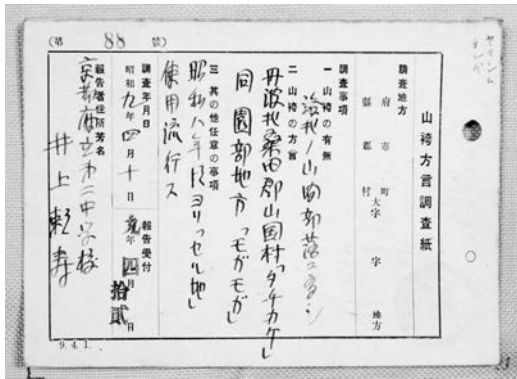 (第 88 號)
山袴方言調査紙
調査地方
府縣
市郡
町村
大字
字
地方
調査事項
一 山袴の有無
二 山袴の方言
丹波北桑田郡山国村「タチカケ」
同 園部地方「モガモガ」
三 其の他任意の事項
昭和八年頃ヨリ「セル地」
使用流行ス
調査年月日
昭和九年四月十日
報告受付
九年四月拾貳日
報告者住所芳名
京都府立第二中学校
井上頼寿
9.4.1.